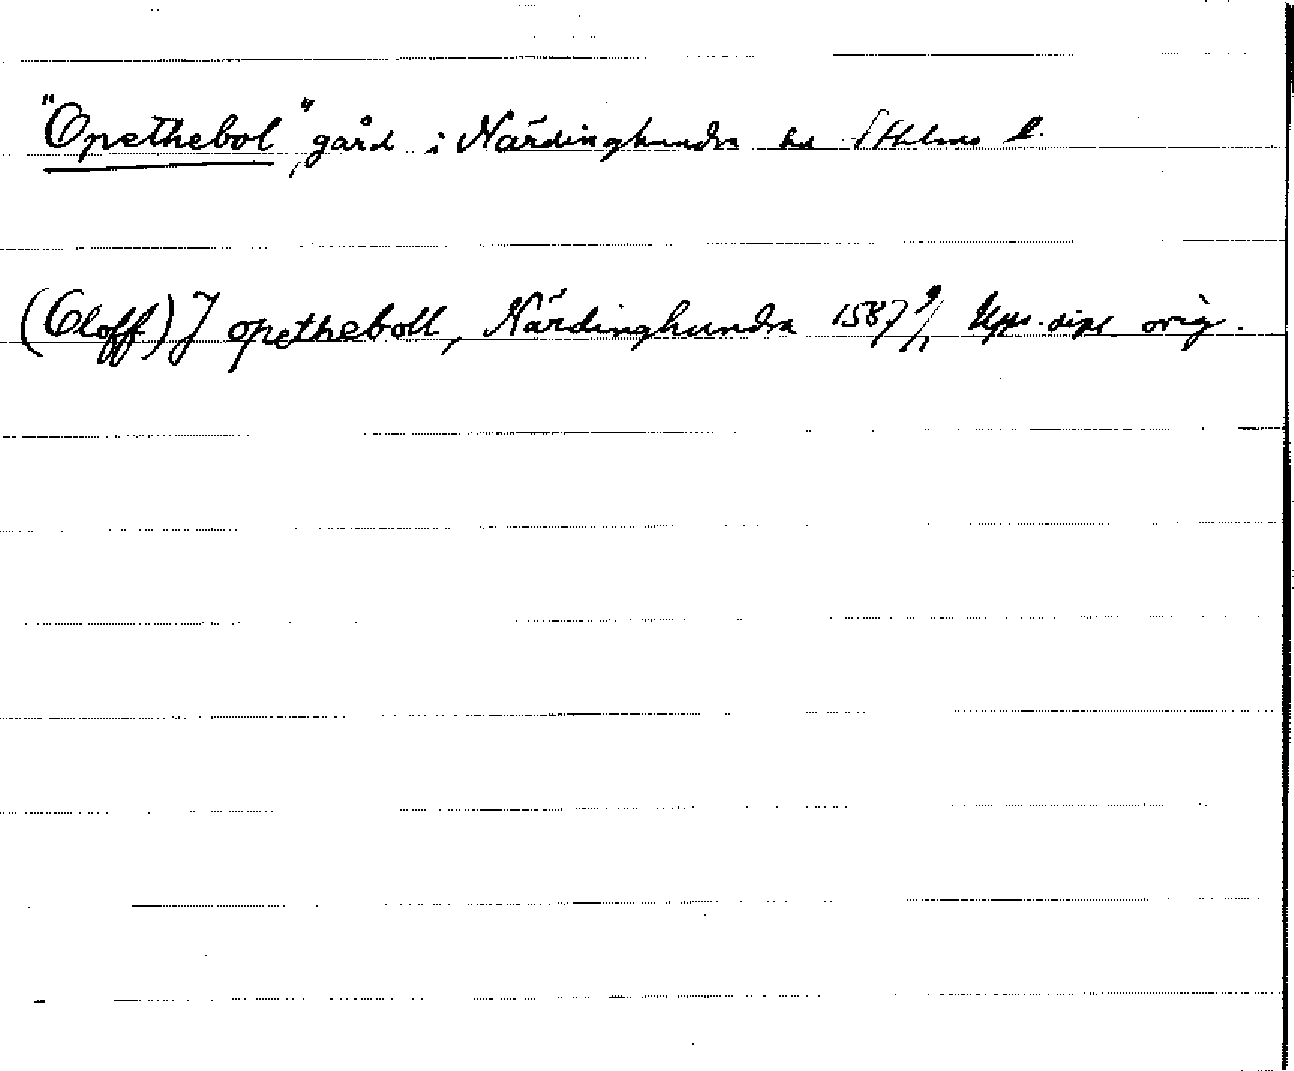 "Opethebol", gård i Närdinghundra hd Sthlms l.
(Oloff) J opetheboll, Närdinghundra 1587 9/1 Upps. dipl orig.